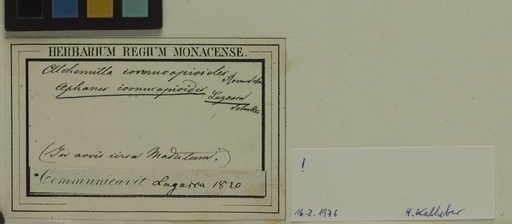 HERBARIUM REGIUM MONACENSE.
Alchemilla cornucopioides Roem et Sch
Aphanes cornucopioides Lagasca
Schultes
(In arvis circa Madritum.)
Communicavit Lagasca 1820
!
16.2.1976 H. Kalheber